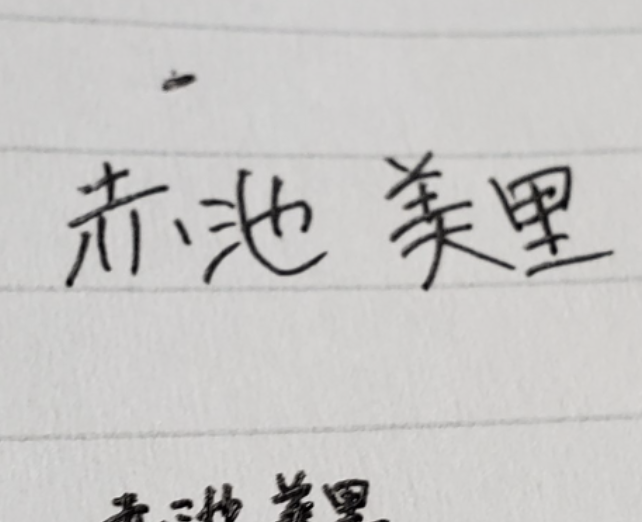 赤池 美里
赤池 美里